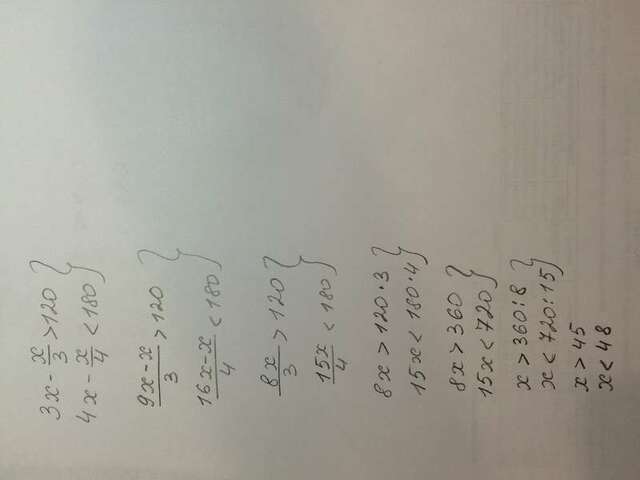 3x - x/3 > 120 }
4x - x/4 < 180 }
9x-x/3 > 120 }
16x-x/4 < 180 }
8x/3 > 120 }
15x/4 < 180 }
8x > 120·3 }
15x < 180·4 }
8x > 360 }
15x < 720 }
x > 360:8 }
x < 720:15 }
x > 45
x < 48